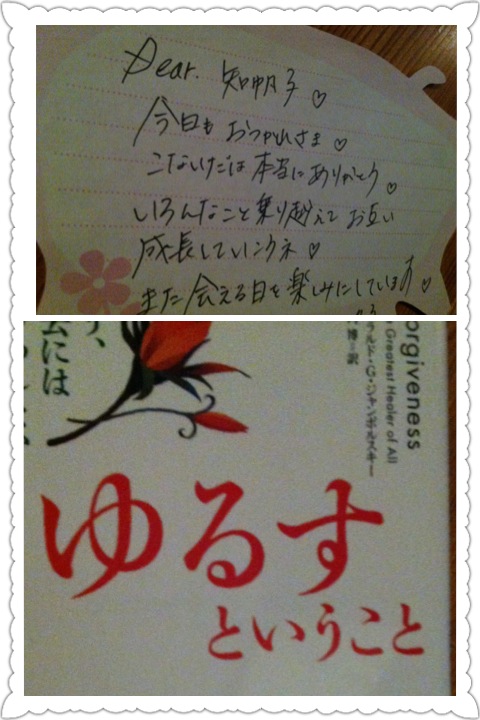 Dear. 知帆子♡
今日も おつかれさま♡
こないだは 本当に ありがとう♡
いろんなこと 乗り越えて お互い
成長していこうネ♡
また 会える日を 楽しみにしています♡
orgiveness
Greatest Healer of All
ゆるす
ということ